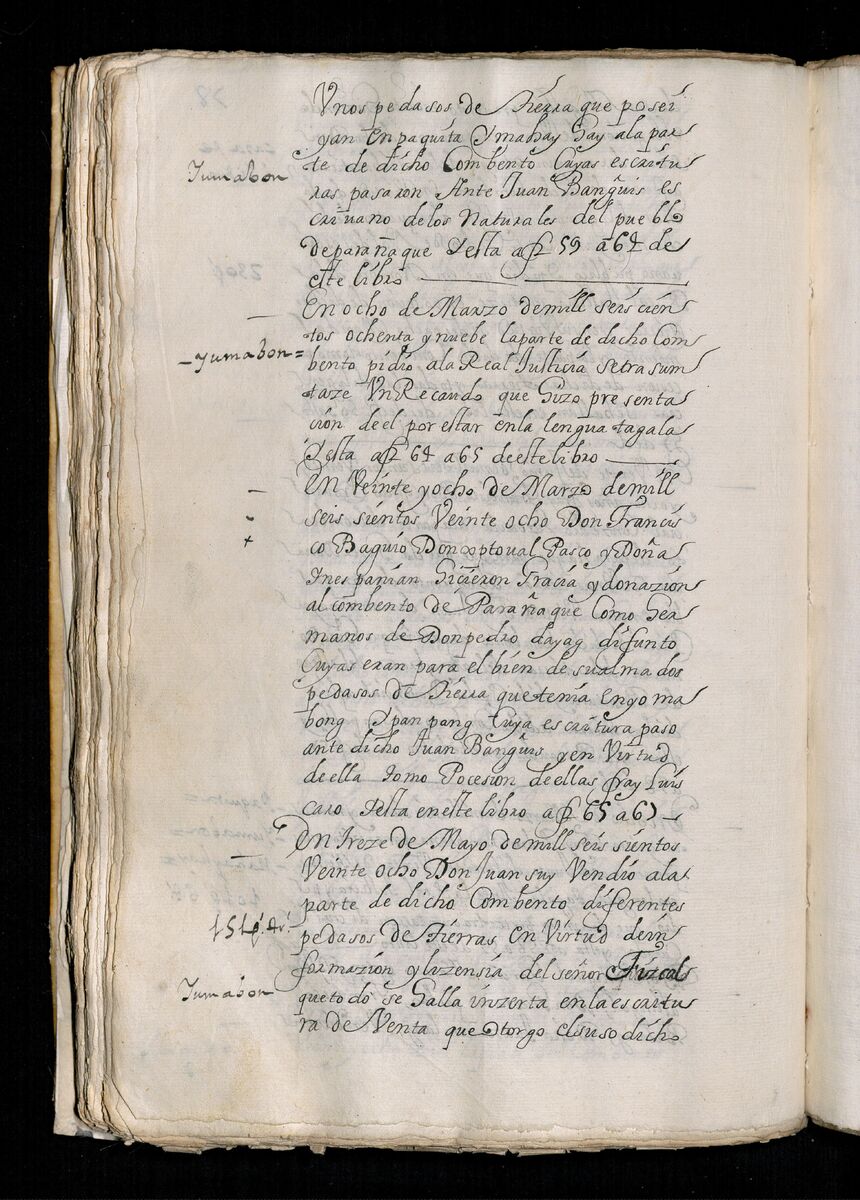 Vnos pedasos de tierra que posei
yan en paquita Ymahay hay ala par
te de dicho Combento Cuyas escritu
Tumabon
ras pasaron Ante Juan Banguis es
criuano delos Naturales del pueblo
de parañaque Yesta af 59 a 64 de
este libro
En ocho de Marzo demill seis cien
tos ochenta y nuebe laparte de dicho Com
-Tumabon=
bento pidio ala Real Justicia setrasum
taze Vn Recaudo que hizo presenta
cion de el por estar enla lengua tagala
Yesta af 64 a 65 de este libro
En Veinte yocho de Marzo demill
seis sientos Veinte ocho Don Francis
+
co Baguio Don xptoual Pasco y Doña
Ines panian hicieron Gracia y donazion
al combento de Parañaque Como her
manos de Don pedro dayag difunto
Cuyas eran para el bien de sualma dos
pedasos de tierra que tenia enyoma
bong Ypanpang Cuya escritura paso
ante dicho Juan Banguis yen Virtud
de ella tomo Pocesion de ellas fray Luis
caro Yesta eneste libro af 65 a 67
En treze de Mayo de mill seis sientos
Veinte ocho Don Juan suy Vendio ala
parte de dicho Combento diferentes
pedasos de Tierras en Virtud de in
formazion y lizensia del señor Fizcal
Tumabon
que todo se halla inzerta en la escritu
ra de Venta que otorgo el suso dicho